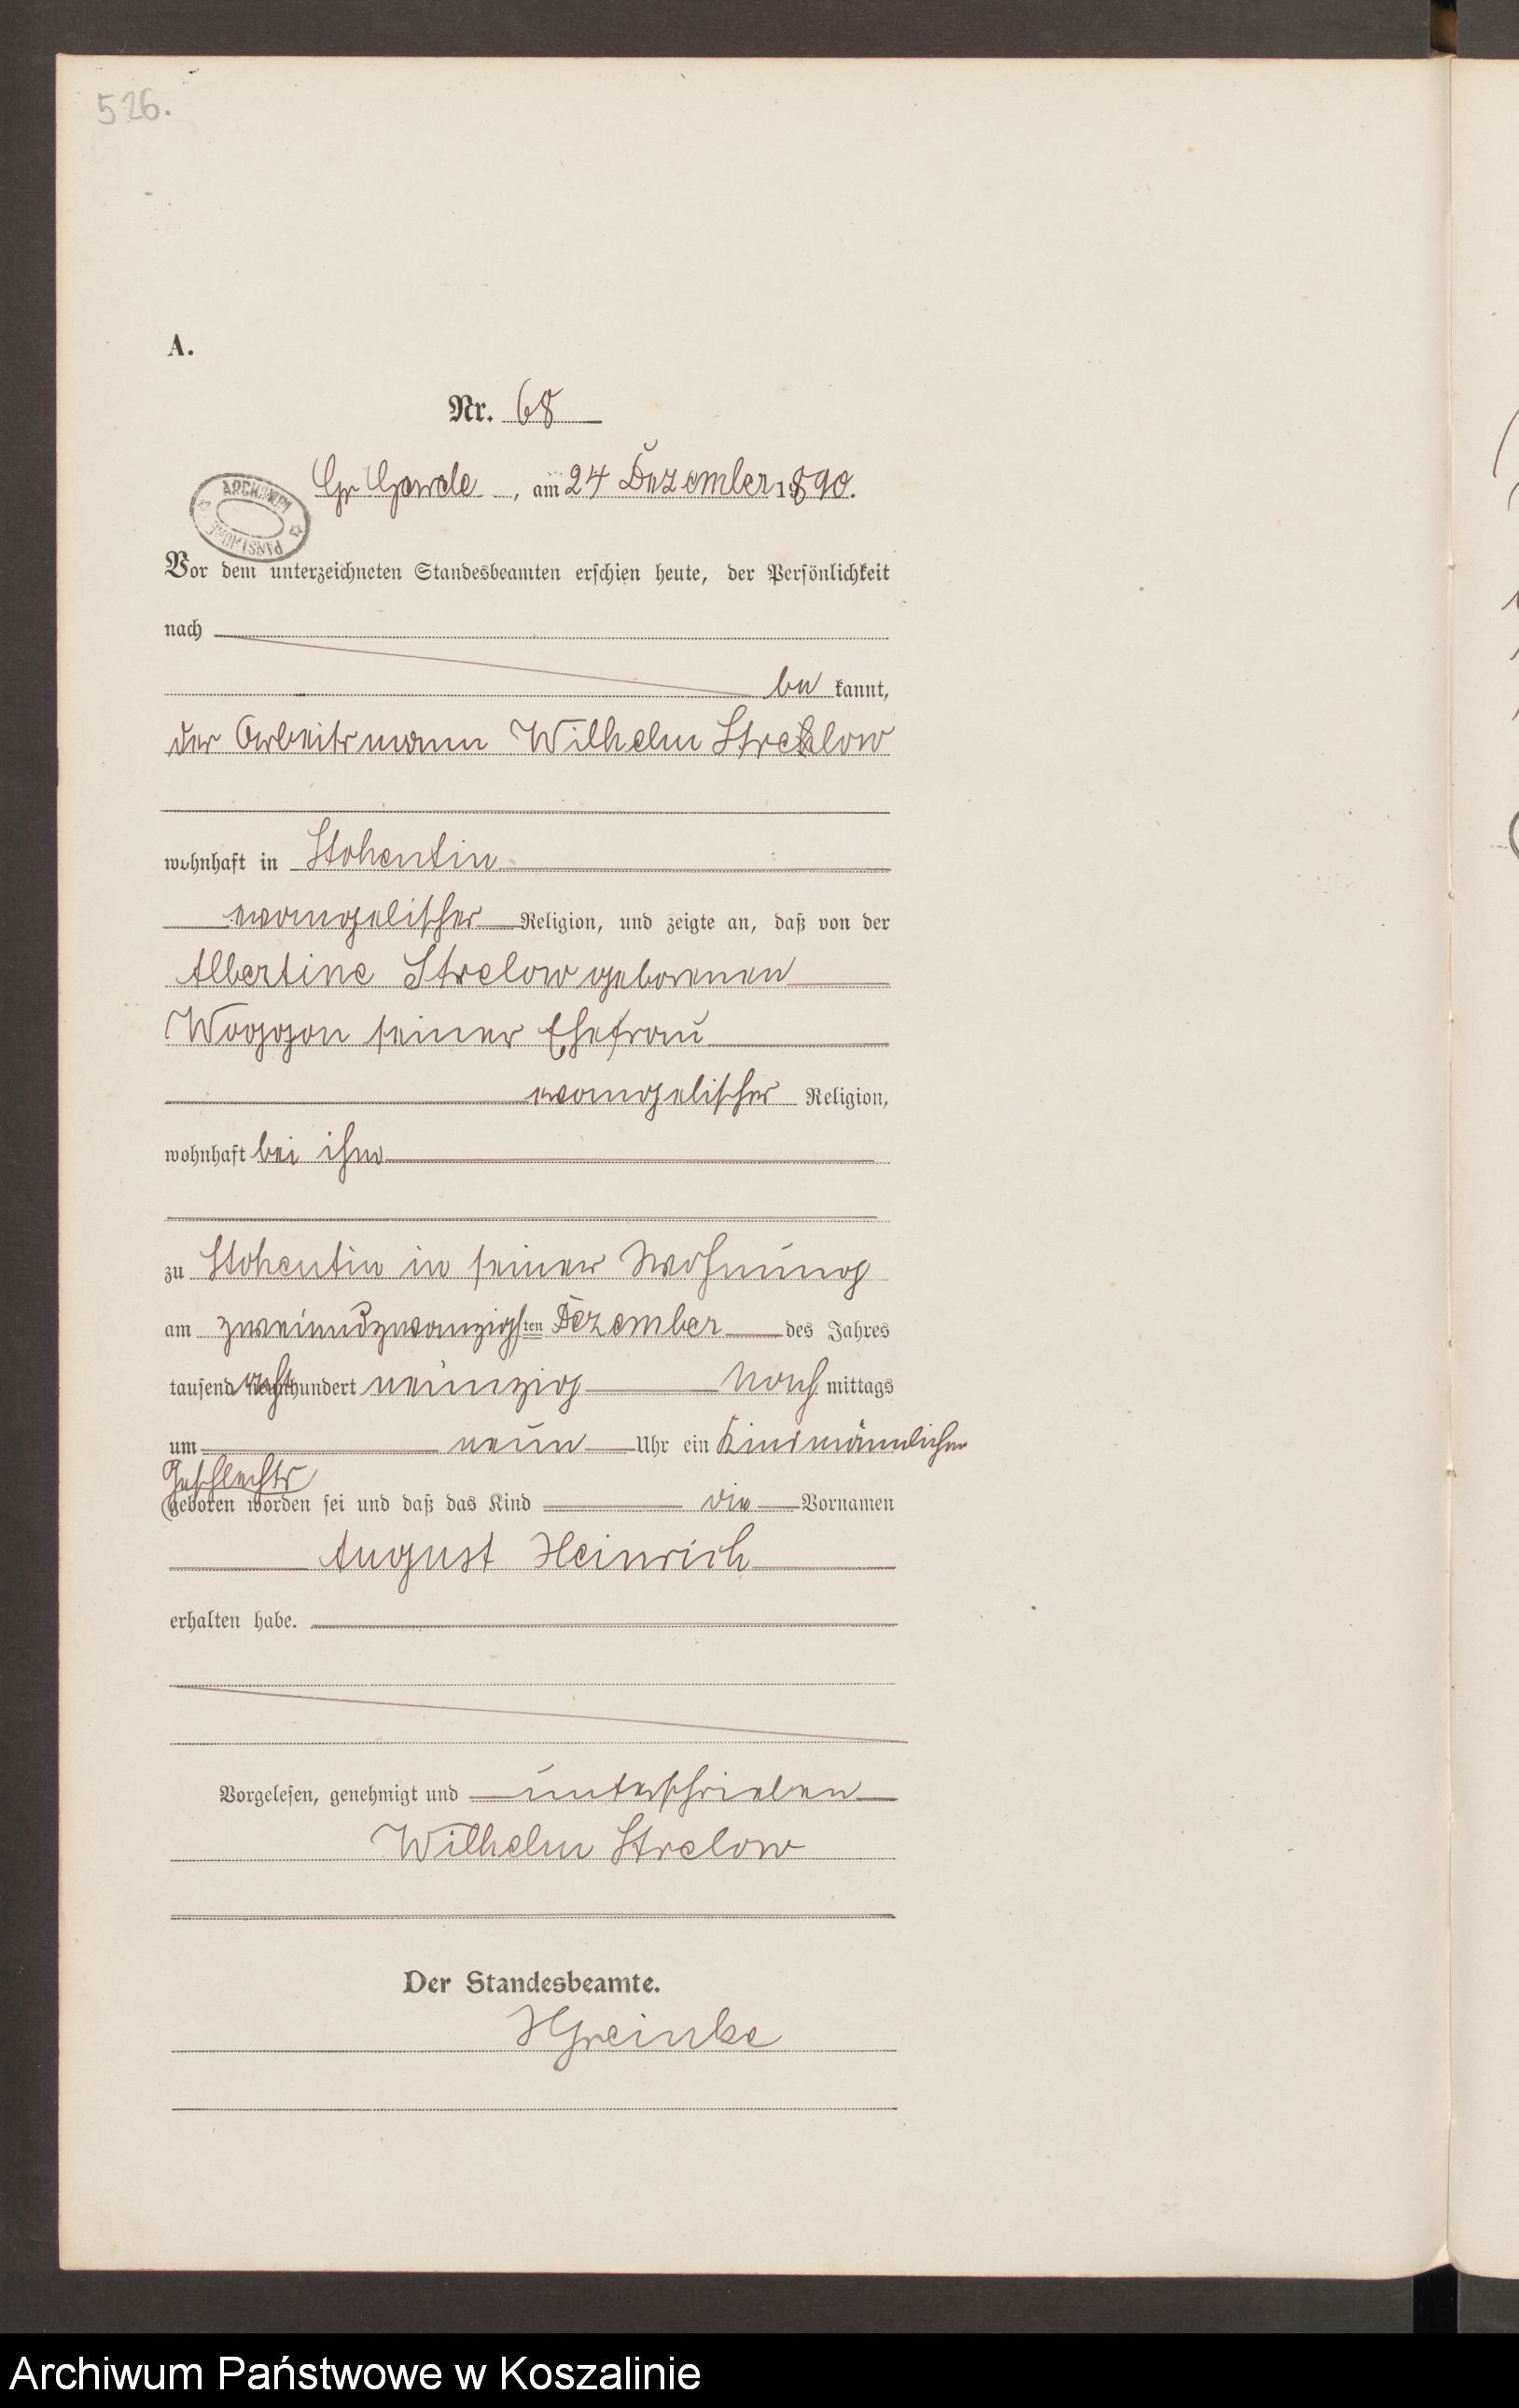 526.
A.
Nr. 68
Gr Garde, am 24 Dezember 1890.
ARCHIWUM
PAŃSTWOWE
Vor dem unterzeichneten Standesbeamten erschien heute, der Persönlichkeit
nach
be kannt,
der Arbeitsmann Wilhelm Strelow
wohnhaft in Stohentin
evangelischer Religion, und zeigte an, daß von der
Albertine Strelow geborenen
Woggon seiner Ehefrau
evangelischer Religion,
wohnhaft bei ihm
zu Stohentin in seiner Wohnung
am zweiundzwanzigsten Dezember des Jahres
tausend achthundert neunzig Nach mittags
um neun Uhr ein Kind männlichen
Geschlechts
geboren worden sei und daß das Kind die Vornamen
August Heinrich
erhalten habe.
Vorgelesen, genehmigt und unterschrieben
Wilhelm Strelow
Der Standesbeamte.
HGreinke
Archiwum Państwowe w Koszalinie